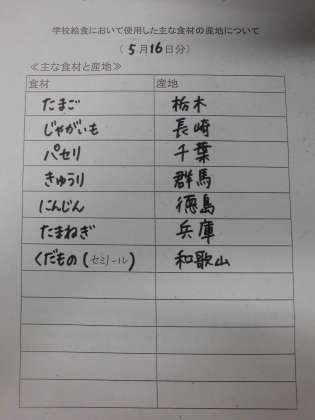 学校給食において使用した主な食材の産地について
(5月16日分)
≪主な食材と産地≫
食材 産地
たまご 栃木
じゃがいも 長崎
パセリ 千葉
きゅうり 群馬
にんじん 徳島
たまねぎ 兵庫
くだもの(セミノール) 和歌山